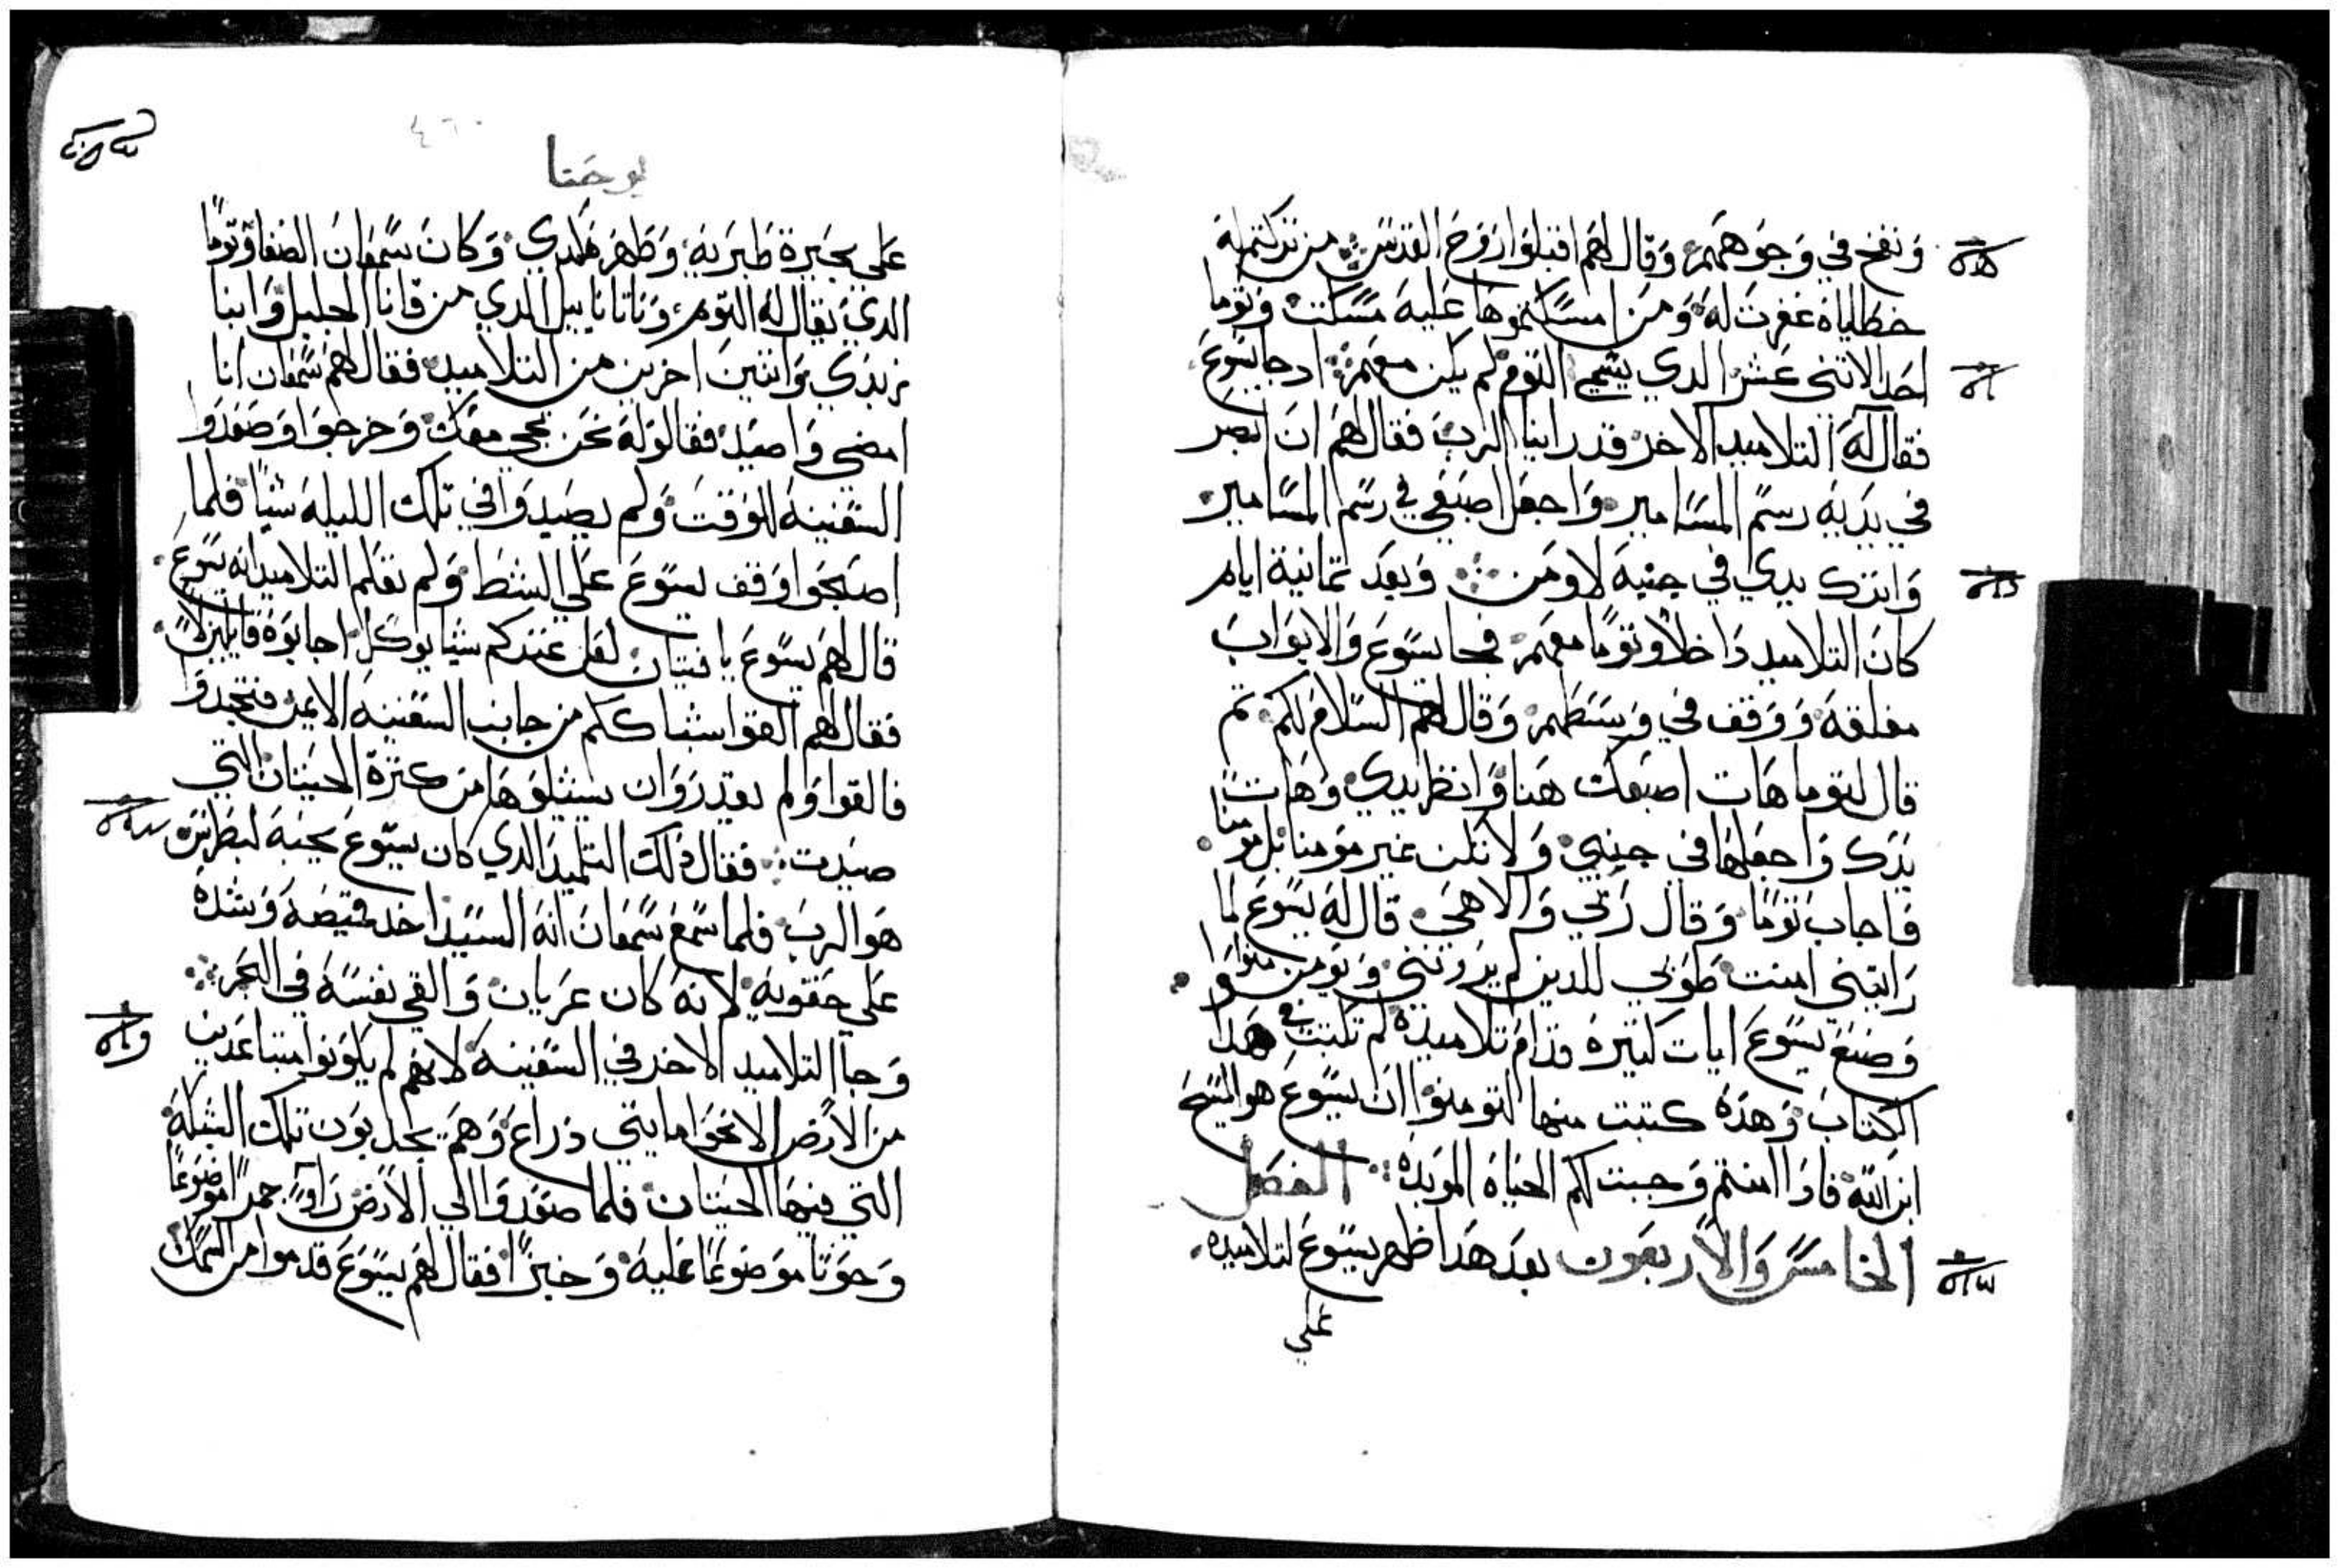 ونفخ في وجوههم وقال لهم اقبلوا روح القدس من تركتم له
خطاياه غفرت له ومن امسكتموها عليه مسكت وتوما
احد الاثني عشر الدي يسمي التوم لم يكن معهم اد جا يسوع
فقال له التلاميد الاخر قد راينا الرب فقال لهم ان ابصر
في يديه رسم المسامير واجعل اصبعي في رسم المسامير
واترك يدي في جنبه لاومن وبعد تمانية ايام
كان التلاميد داخلا وتوما معهم فجا يسوع والابواب
مغلقه ووقف في وسطهم وقال لهم السلام لكم تم
قال لتوما هات اصبعك هنا وانظر يدي وهات
يدك واجعلها في جنبي ولا تكن غير مومنا بل مومنا
فاجاب توما وقال ربي والاهي قال له يسوع لما
رايتني امنت طوبي للدين لم يروني ويومنوا
وصنع يسوع ايات كتيره قدام تلاميده لم تكتب في هدا
الكتاب وهده كتبت منها لتومنوا ان يسوع هو المسيح
ابن الله فادا امنتم وجبت لكم الحياه الموبده الفصل
الخامس والاربعون بعد هدا ظهر يسوع لتلاميده
علي
يوحنا
٤٦٠
علي بحيرة طبريه وظهر هكدي وكان سمعان الصفا وتوما
الدي يقال له التوم وناتاناييل الدي من قانا الجليل وابنا
زبدي واتنين اخرين من التلاميد فقال لهم سمعان انا
امضي واصيد فقالو له نحن نجي معك وخرجوا وصعدوا
السفينه الوقت ولم يصيدوا في تلك الليله شيا فلما
اصبحوا وقف يسوع علي الشط ولم تعلم التلاميد انه يسوع
قال لهم يسوع يا فتيان لعل عندكم شيا يوكل اجابوه قايلين لا
فقال لهم القوا شباككم من جانب السفينه الايمن فتجدوا
فالقوا ولم يقدروان يشيلوها من كترة الحيتان التي
صيدت فقال دلك التلميد الدي كان يسوع يحبه لبطرس
هو الرب فلما سمع سمعان انه السيد اخد قميصه وشده
علي حقويه لانه كان عريان والقي نفسه في البحر
وجا التلاميد الاخر في السفينه لانهم لم يكونوا متباعدين
من الارض الا نحوا مايتي دراع وهم يجدبون تلك الشبكه
التي فيها الحيتان فلما صعدوا الي الارض راوا جمرا موضوعا
وحوتا موضوعا عليه وخبزا فقال لهم يسوع قدموا من السمك